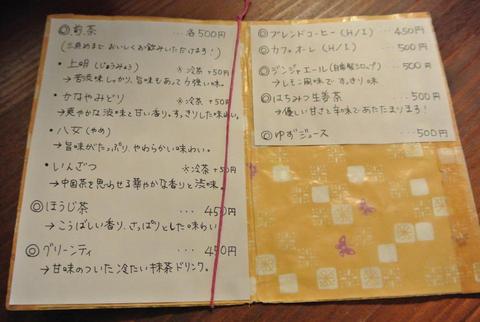 ◎煎茶 ・・・各500円
(三煎めまで おいしくお飲みいただけます!)
・上明(じょうみょう) ※冷茶+50円
→苦渋味しっかり、旨味もあって力強い味。
・かなやみどり ※冷茶+50円
→爽やかな渋味と甘い香り。すっきりした味わい。
・八女(やめ)
→旨味がたっぷり、やわらかい味わい。
・いんざつ ※冷茶+50円
→中国茶を思わせる華やかな香りと渋味。
◎ほうじ茶 ・・・450円
→こうばしい香り、さっぱりとした味わい
◎グリーンティ ・・・450円
→甘味のついた冷たい抹茶ドリンク。
◎ブレンドコーヒー(H/I) ・・・450円
◎カフェオーレ(H/I) ・・・500円
◎ジンジャエール(自家製シロップ) ・・・500円
→レモン風味ですっきり味
◎はちみつ生姜茶 ・・・500円
→優しい甘さと辛味であたたまります!
◎ゆずジュース ・・・500円